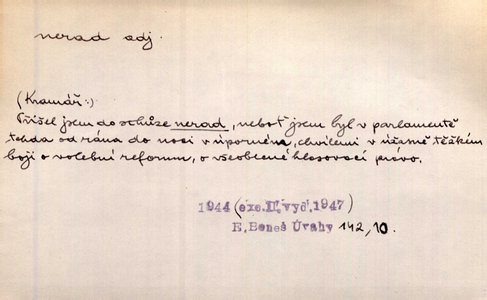 nerad adj.
(Kramář:)
Přišel jsem do schůze nerad, neboť jsem byl v parlamentě
tehda od rána do noci v úporném, chvílemi v úžasně těžkém
boji o volební reformu, o všeobecné hlasovací právo.
1944 (exc.II.vyd.1947)
E.Beneš Úvahy 142,10.